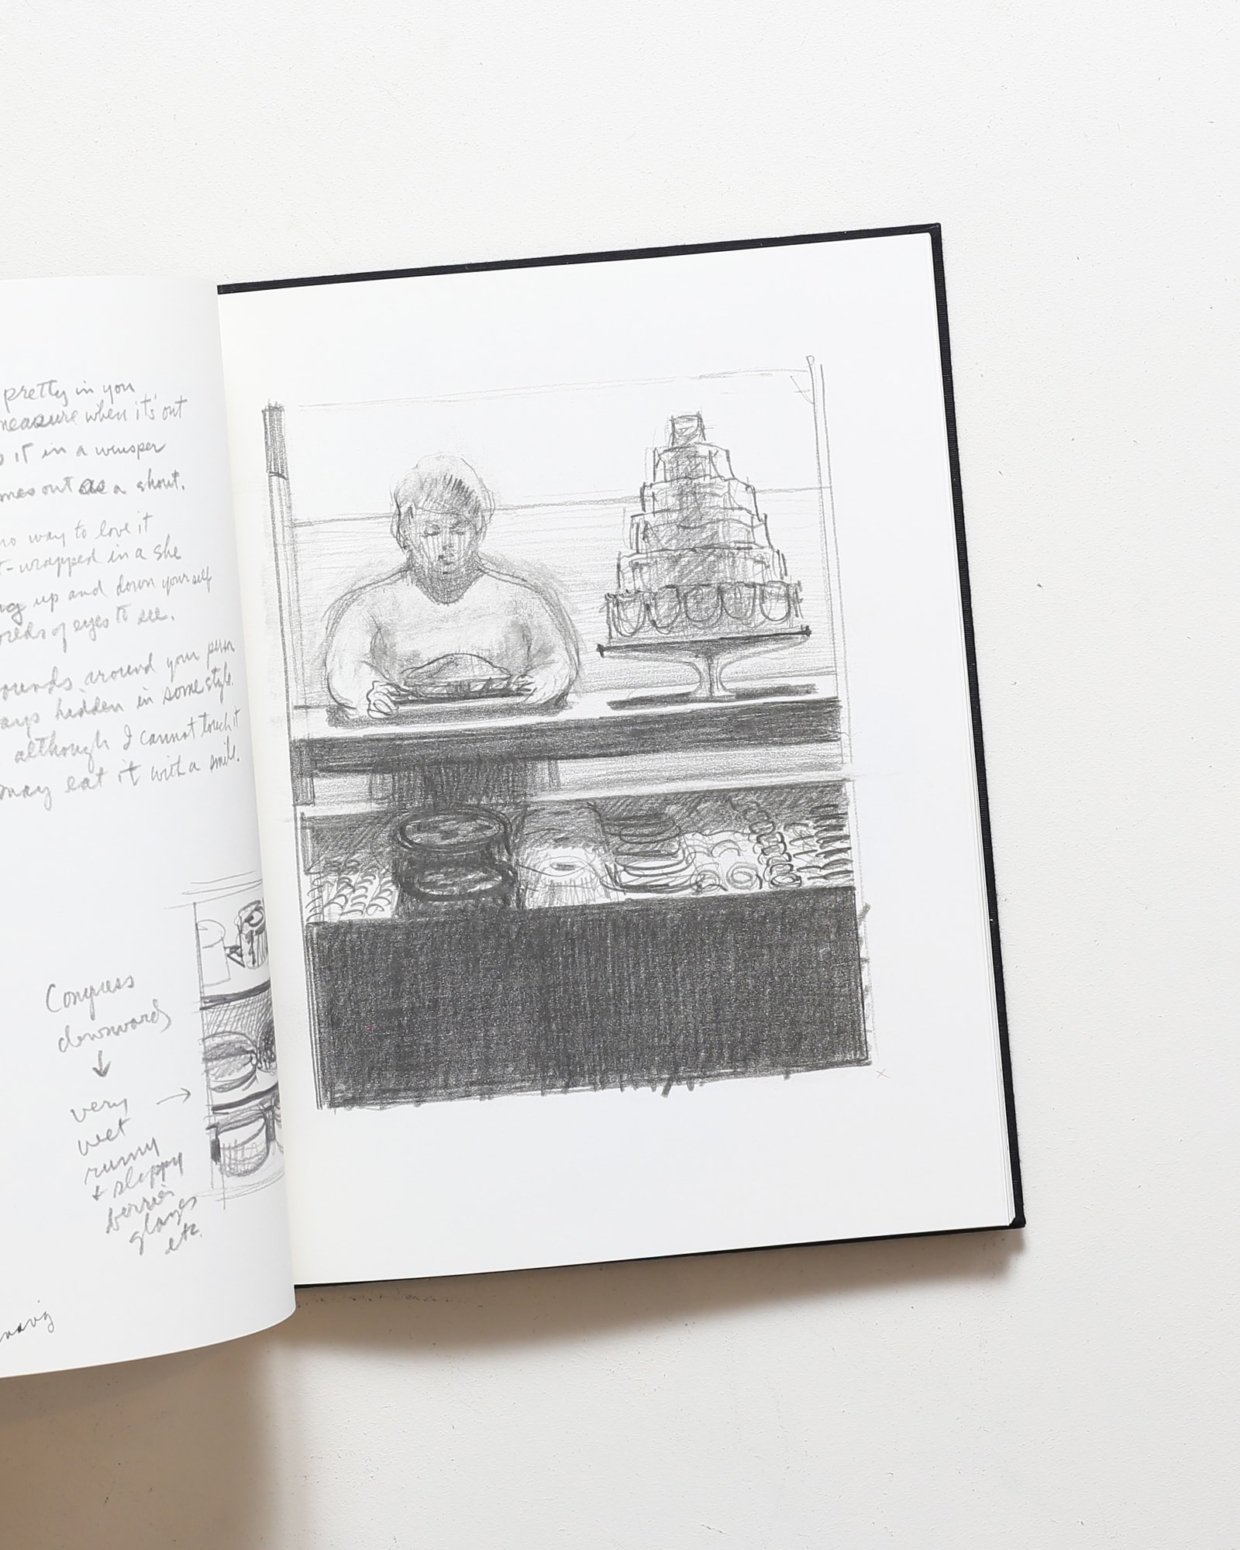 pretty in you
measure when it's out
it in a whisper
out as a shout.
no way to love it
wrapped in a she
up and down yourself
of eyes to see.
around your person
hidden in some style.
although I cannot touch it
may eat it with a smile.
Congress
downwards
↓
very →
wet
runny
+ slippy
berries
glazes
etc.